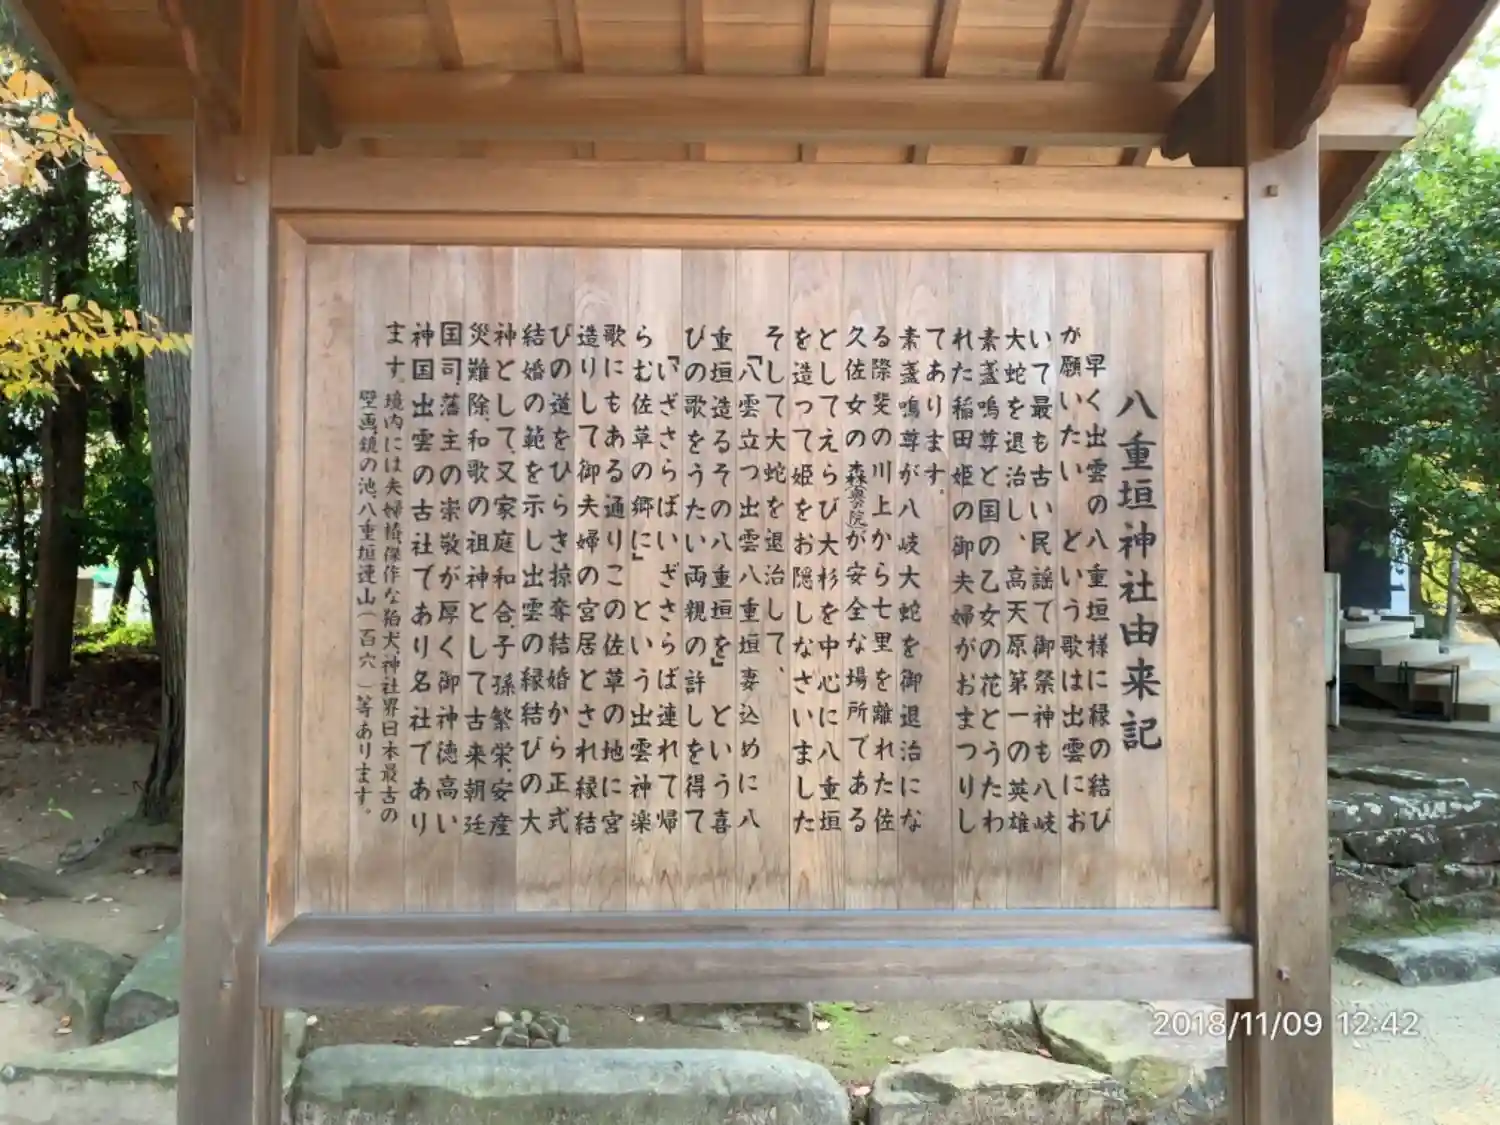 八重垣神社由来記
早く出雲の八重垣様に縁の結び
が願いたい という歌は出雲にお
いて最も古い民謡で御祭神も八岐
大蛇を退治し、高天原第一の英雄
素盞嗚尊と国の乙女の花とうたわ
れた稲田姫の御夫婦がおまつりし
てあります。
素盞嗚尊が八岐大蛇を御退治にな
る際斐の川上から七里を離れた佐
久佐女の森(奥の院)が安全な場所である
としてえらび大杉を中心に八重垣
を造って姫をお隠しなさいました
そして大蛇を退治して、
「八雲立つ出雲八重垣妻込めに八
重垣造るその八重垣を」という喜
びの歌をうたい両親の許しを得て
「いざさらばいざさらば連れて帰
らむ佐草の郷に」という出雲神楽
歌にもある通りこの佐草の地に宮
造りして御夫婦の宮居とされ縁結
びの道をひらき掠奪結婚から正式
結婚の範を示し出雲の縁結びの大
神として、又家庭和合、子孫繁栄、安産
災難除、和歌の祖神として古来朝廷
国司、藩主の崇敬が厚く御神徳高い
神国出雲の古社であり名社であり
ます。境内には夫婦椿、傑作な狛犬、神社界日本最古の
壁画、鏡の池、八重垣連山(百穴)等あります。
2018/11/09 12:42